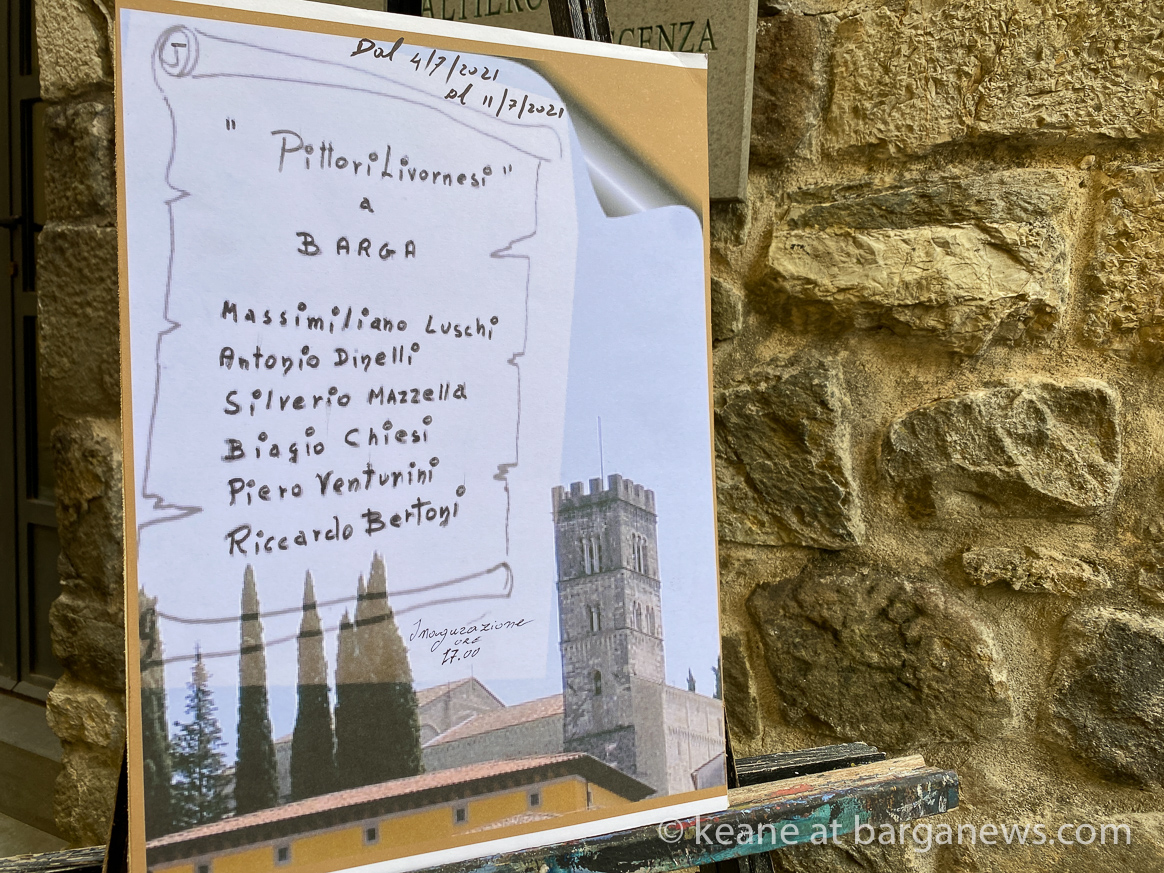 ALTIERO
CENZA
Dal 4/7/2021
al 11/7/2021
" Pittori Livornesi "
a
BARGA
Massimiliano Luschi
Antonio Dinelli
Silverio MAZZella
Biagio Chiesi
Piero Venturini
Riccardo Bertoni
Inaugurazione
ORE
17.00
© keane at barganews.com